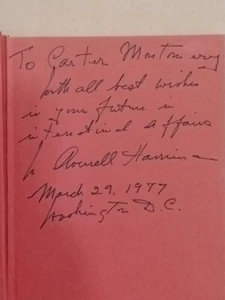 To Carter
with all best wishes
in your future in
international affairs
Averell Harriman
March 29, 1977
Washington D.C.